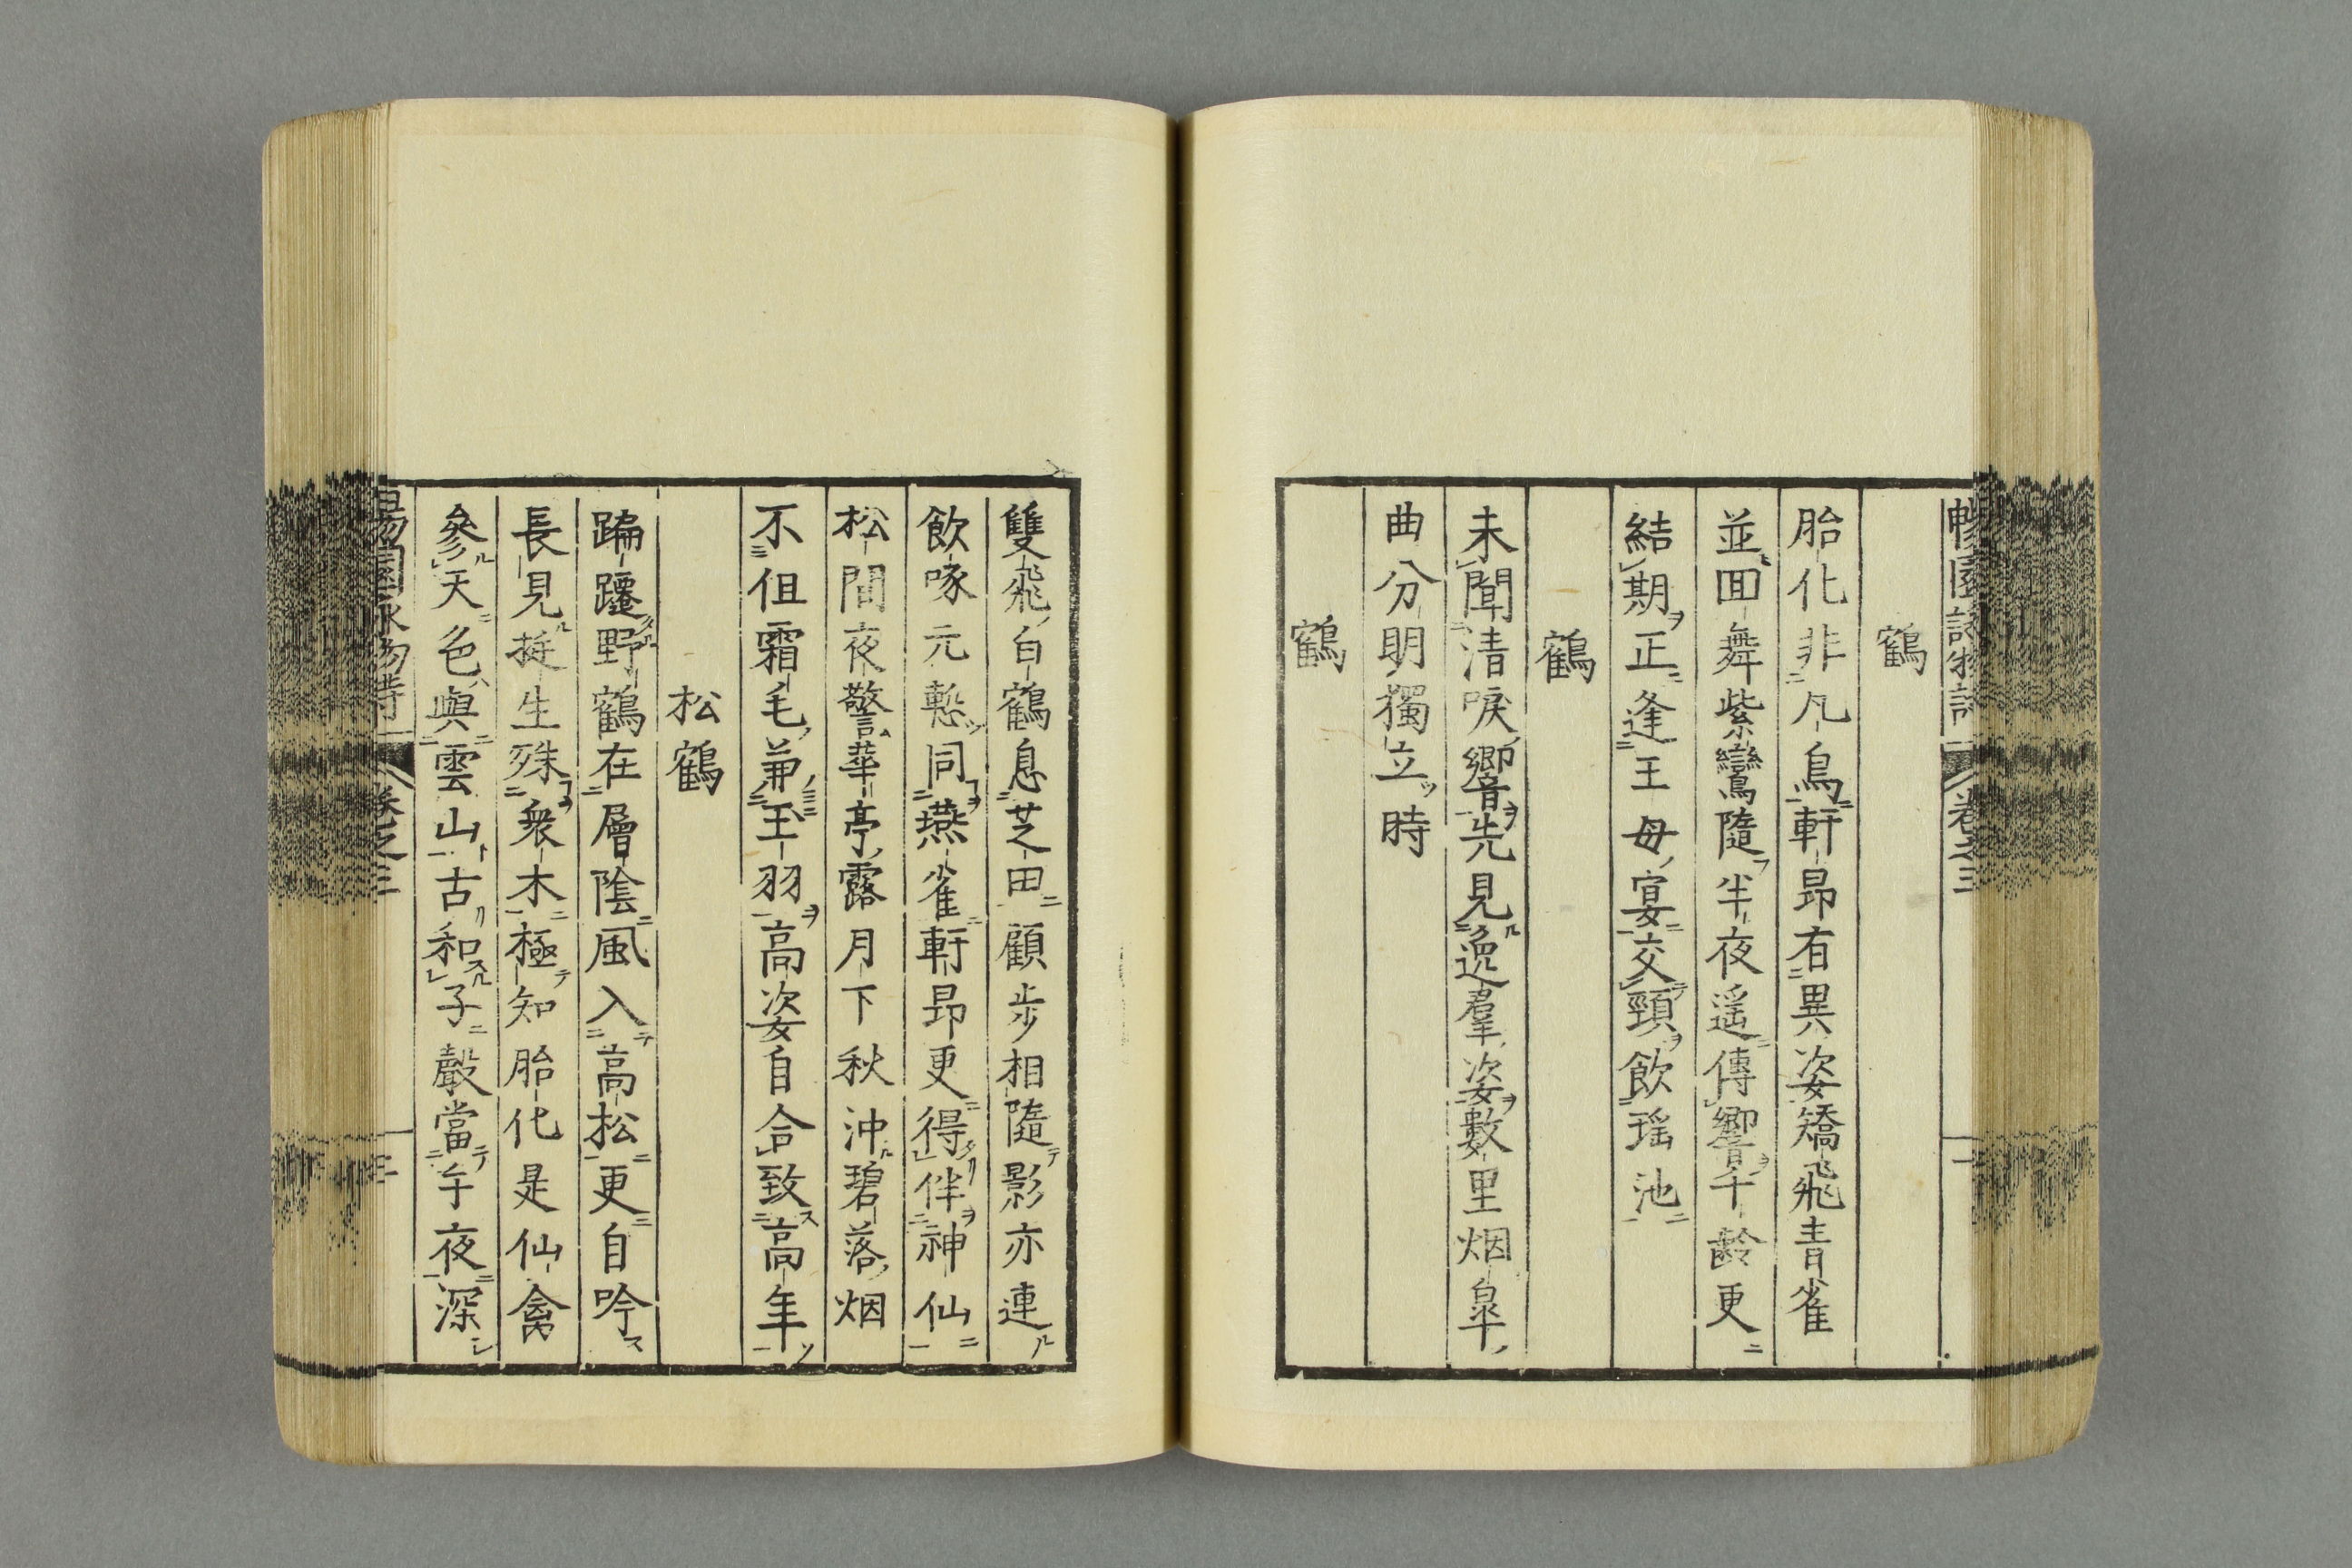 暢園詠物詩 卷之三 二
鶴
胎化非凡鳥軒昂有異姿矯飛青雀
並回舞紫鸞隨半夜遥傳響千齡更
結期正逢王母宴交頸飲瑶池
鶴
未聞清唳響先見逸羣姿數里烟皐
曲分明獨立時
鶴
雙飛白鶴息芝田顧步相隨影亦連
飲啄元慙同燕雀軒昂更得伴神仙
松間夜警華亭露月下秋沖碧落烟
不但霜毛兼玉羽高姿自合致高年
松鶴
蹁躚野鶴在層陰風入高松更自吟
長見挺生殊衆木極知胎化是仙禽
參天色與雲山古和子聲當午夜深
暢園詠物詩 卷之三 三